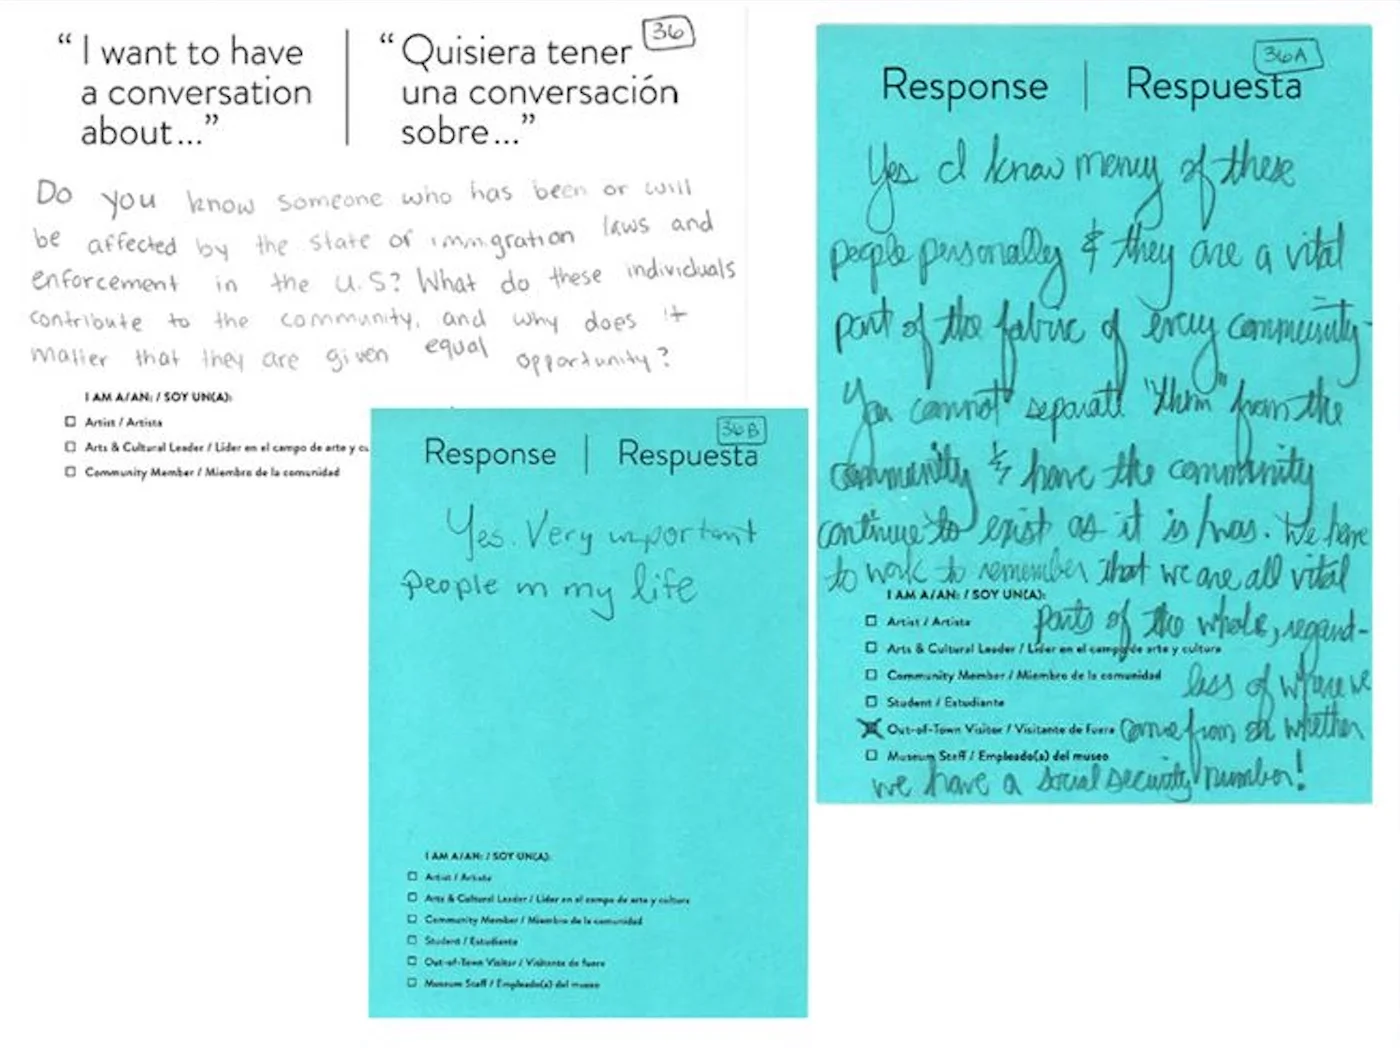 36
“ I want to have
a conversation
about...”
“ Quisiera tener
una conversación
sobre...”
Do you know someone who has been or will
be affected by the state of immigration laws and
enforcement in the U.S? What do these individuals
contribute to the community, and why does it
matter that they are given equal opportunity?
I AM A/AN: / SOY UN(A):
☐ Artist / Artista
☐ Arts & Cultural Leader / Líder en el campo de arte y cu
☐ Community Member / Miembro de la comunidad
36A
Response | Respuesta
Yes I know many of these
people personally & they are a vital
part of the fabric of every community.
You cannot separate "them" from the
community & have the community
continue to exist as it is/was. We have
to work to remember that we are all vital
parts of the whole, regard-
less of where we
come from or whether
we have a social security number!
I AM A/AN: / SOY UN(A):
☐ Artist / Artista
☐ Arts & Cultural Leader / Líder en el campo de arte y cultura
☐ Community Member / Miembro de la comunidad
☐ Student / Estudiante
☒ Out-of-Town Visitor / Visitante de fuera
☐ Museum Staff / Empleado(a) del museo
36B
Response | Respuesta
Yes. Very important
people in my life
I AM A/AN: / SOY UN(A):
☐ Artist / Artista
☐ Arts & Cultural Leader / Líder en el campo de arte y cultura
☐ Community Member / Miembro de la comunidad
☐ Student / Estudiante
☐ Out-of-Town Visitor / Visitante de fuera
☐ Museum Staff / Empleado(a) del museo